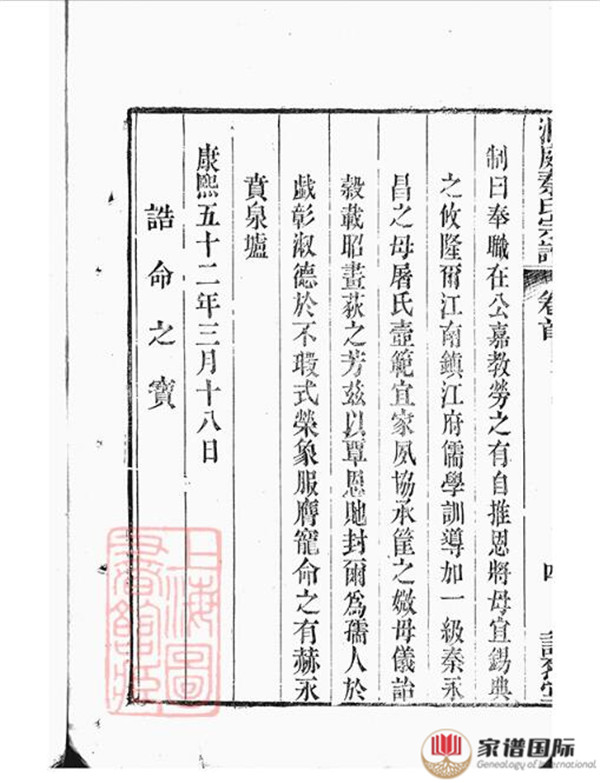 洞庭秦氏宗譜
卷首
四
制曰奉職在公嘉教勞之有自推恩將母宜錫典
之攸隆爾江南鎮江府儒學訓導加一級秦永
昌之母屠氏壼範宜家夙協承筐之媺母儀詒
穀載昭畫荻之芳茲以覃恩貤封爾為孺人於
戲彰淑德於不瑕式榮象服膺寵命之有赫永
賁泉壚
康熙五十二年三月十八日
誥命之寶
上海圖
書館藏
家谱国际
Genealogy of International